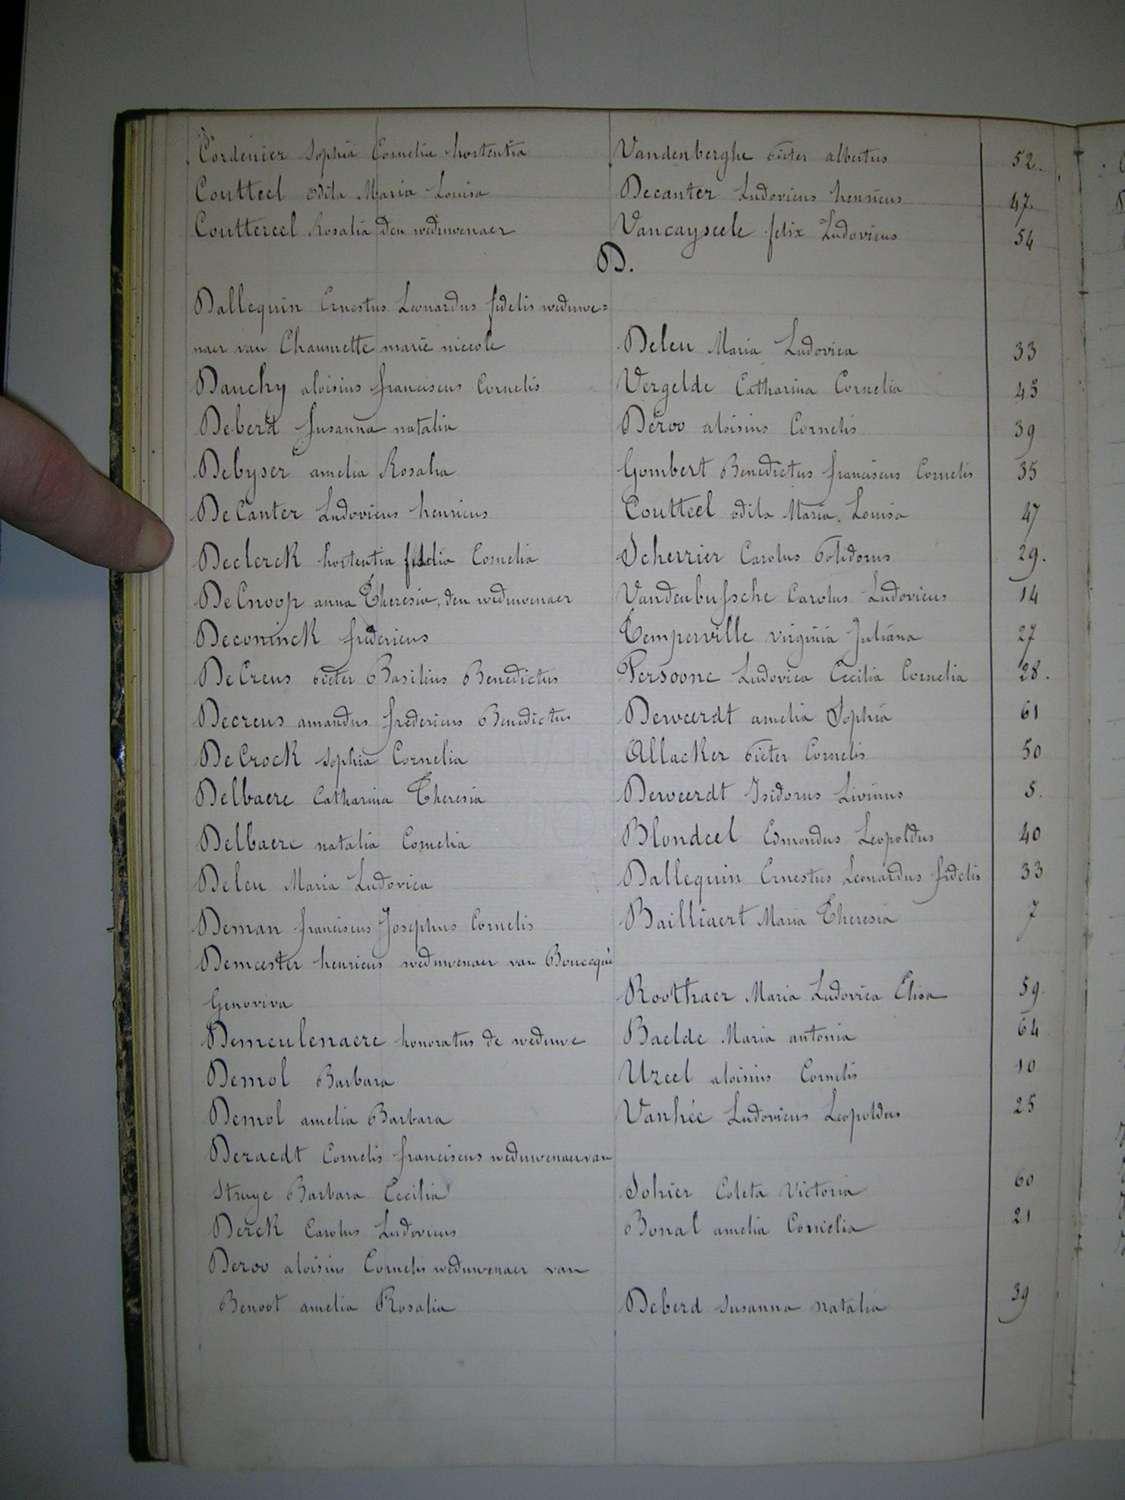 Cordenier Sophia Cornelia hortentia Vandenberghe Pieter albertus 52.
Coutteel odila Maria Louisa Decanter Ludovicus henricus 47.
Couttereel Rosalia den weduwenaer Vancayseele felix Ludovicus 54
D.
Dallequin Ernestus Leonardus fidelis weduwe=
naer van Chaumette marie niccole Deleu Maria Ludovica 33
Dauchy aloisius franciscus Cornelis Vergelde Catharina Cornelia 45
Deberd Susanna natalia Deroo aloisius Cornelis 39
Debyser amelia Rosalia Gombert Benedictus franciscus Cornelis 35
DeCanter Ludovicus henricus Coutteel odila Maria Louisa 47
Declerck hortentia fidelia Cornelia Scherrier Carolus Polidorus 29.
DeCnoop anna Theresia, den weduwenaer Vandenbussche Carolus Ludovicus 14
Deconinck fredericus Temperville virginia Juliana 27
DeCreus Pieter Basilius Benedictus Persoone Ludovica Cecilia Cornelia 28.
Decreus amandus fredericus Benedictus Deweerdt amelia Sophia 61
DeCrock Sophia Cornelia Allacker Pieter Cornelis 50
Delbaere Catharina Theresia Deweerdt Isidorus Livinus 5.
Delbaere natalia Cornelia Blondeel Edmondus Leopoldus 40
Deleu Maria Ludovica Dallequin Ernestus Leonardus fidelis 33
Deman franciscus Josephus Cornelis Bailliaert Maria Theresia 7
Demeester henricus weduwenaer van Boucequé
Genoviva Roothaer Maria Ludovica Elisa 59.
Demeulenaere honoratus de weduwe Baelde Maria antonia 64
Demol Barbara Uzeel aloisius Cornelis 10
Demol amelia Barbara Vanhée Ludovicus Leopoldus 25
Deraedt Cornelis franciscus weduwenaer van
Struye Barbara Cecilia Sohier Coleta Victoria 60
Derck Carolus Ludovicus Bonal amelia Cornelia 21
Deroo aloisius Cornelis weduwenaer van
Benoot amelia Rosalia Deberd Susanna natalia 39